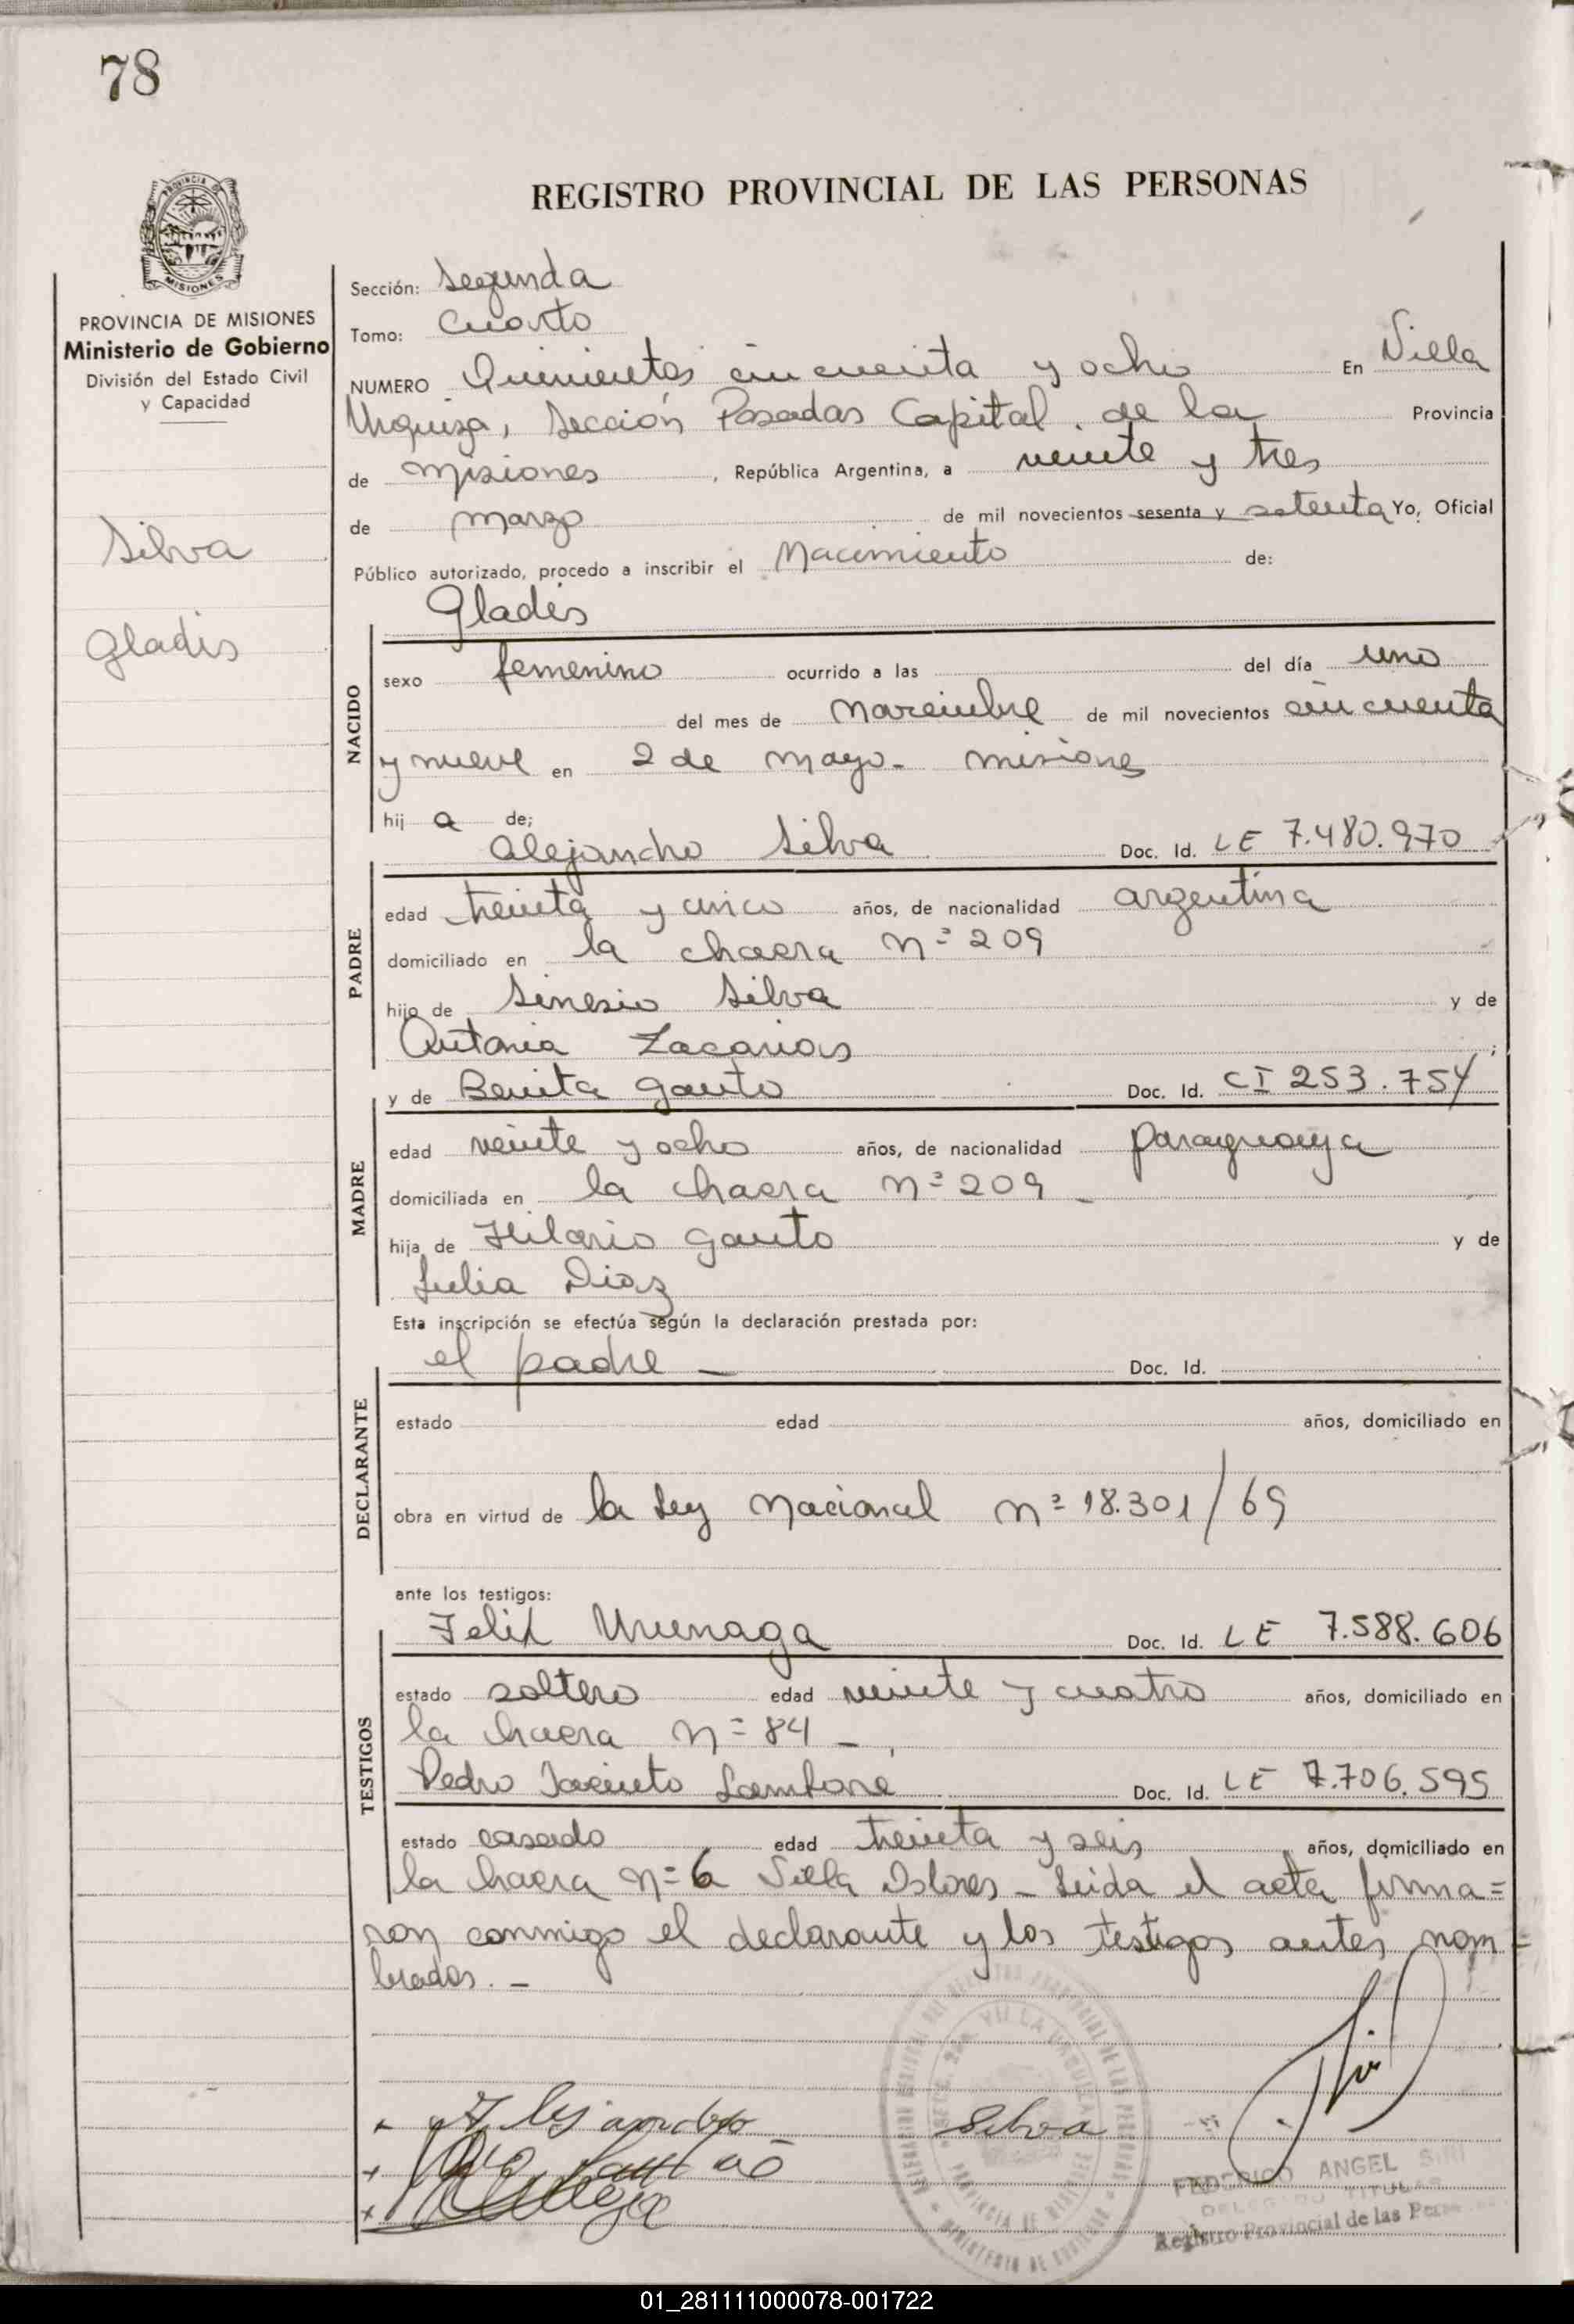 78
REGISTRO PROVINCIAL DE LAS PERSONAS
PROVINCIA DE MISIONES
PROVINCIA DE MISIONES
Ministerio de Gobierno
División del Estado Civil
y Capacidad
Silva
Gladis
Sección: Segunda
Tomo: Cuarto
NUMERO Quinientos cincuenta y ocho En Villa
Urquiza, Sección Posadas Capital de la Provincia
de Misiones, República Argentina, a veinte y tres
de marzo de mil novecientos sesenta y setenta Yo, Oficial
Público autorizado, procedo a inscribir el Nacimiento de:
Gladis
NACIDO
sexo femenino ocurrido a las del día uno
del mes de noviembre de mil novecientos cincuenta
y nueve en 2 de mayo - misiones
hij a de;
Alejandro Silva Doc. Id. LE 7.480.970
PADRE
edad treinta y cinco años, de nacionalidad argentina
domiciliado en la chacra nº 209
hijo de Sinesio Silva y de
Antonia Zacarias;
y de Benita Gauto Doc. Id. CI 253.754
MADRE
edad veinte y ocho años, de nacionalidad paraguaya
domiciliada en la chacra nº 209 -
hija de Hilario Gauto y de
Julia Diaz
Esta inscripción se efectúa según la declaración prestada por:
el padre - Doc. Id.
DECLARANTE
estado edad años, domiciliado en
obra en virtud de la Ley Nacional nº 18.301/69
ante los testigos:
Felix Urunaga Doc. Id. LE 7.588.606
TESTIGOS
estado soltero edad veinte y cuatro años, domiciliado en
la chacra nº 84 -
Pedro Jacinto Doc. Id. LE 7.706.595
estado casado edad treinta y seis años, domiciliado en
la chacra nº 6 Villa Dolores - Leida el acta firma=
ron conmigo el declarante y los testigos antes nom=
brados. -
Alejandro Silva
FEDERICO ANGEL SIRI
DELEGADO TITULAR
Registro Provincial de las Personas
01_281111000078-001722